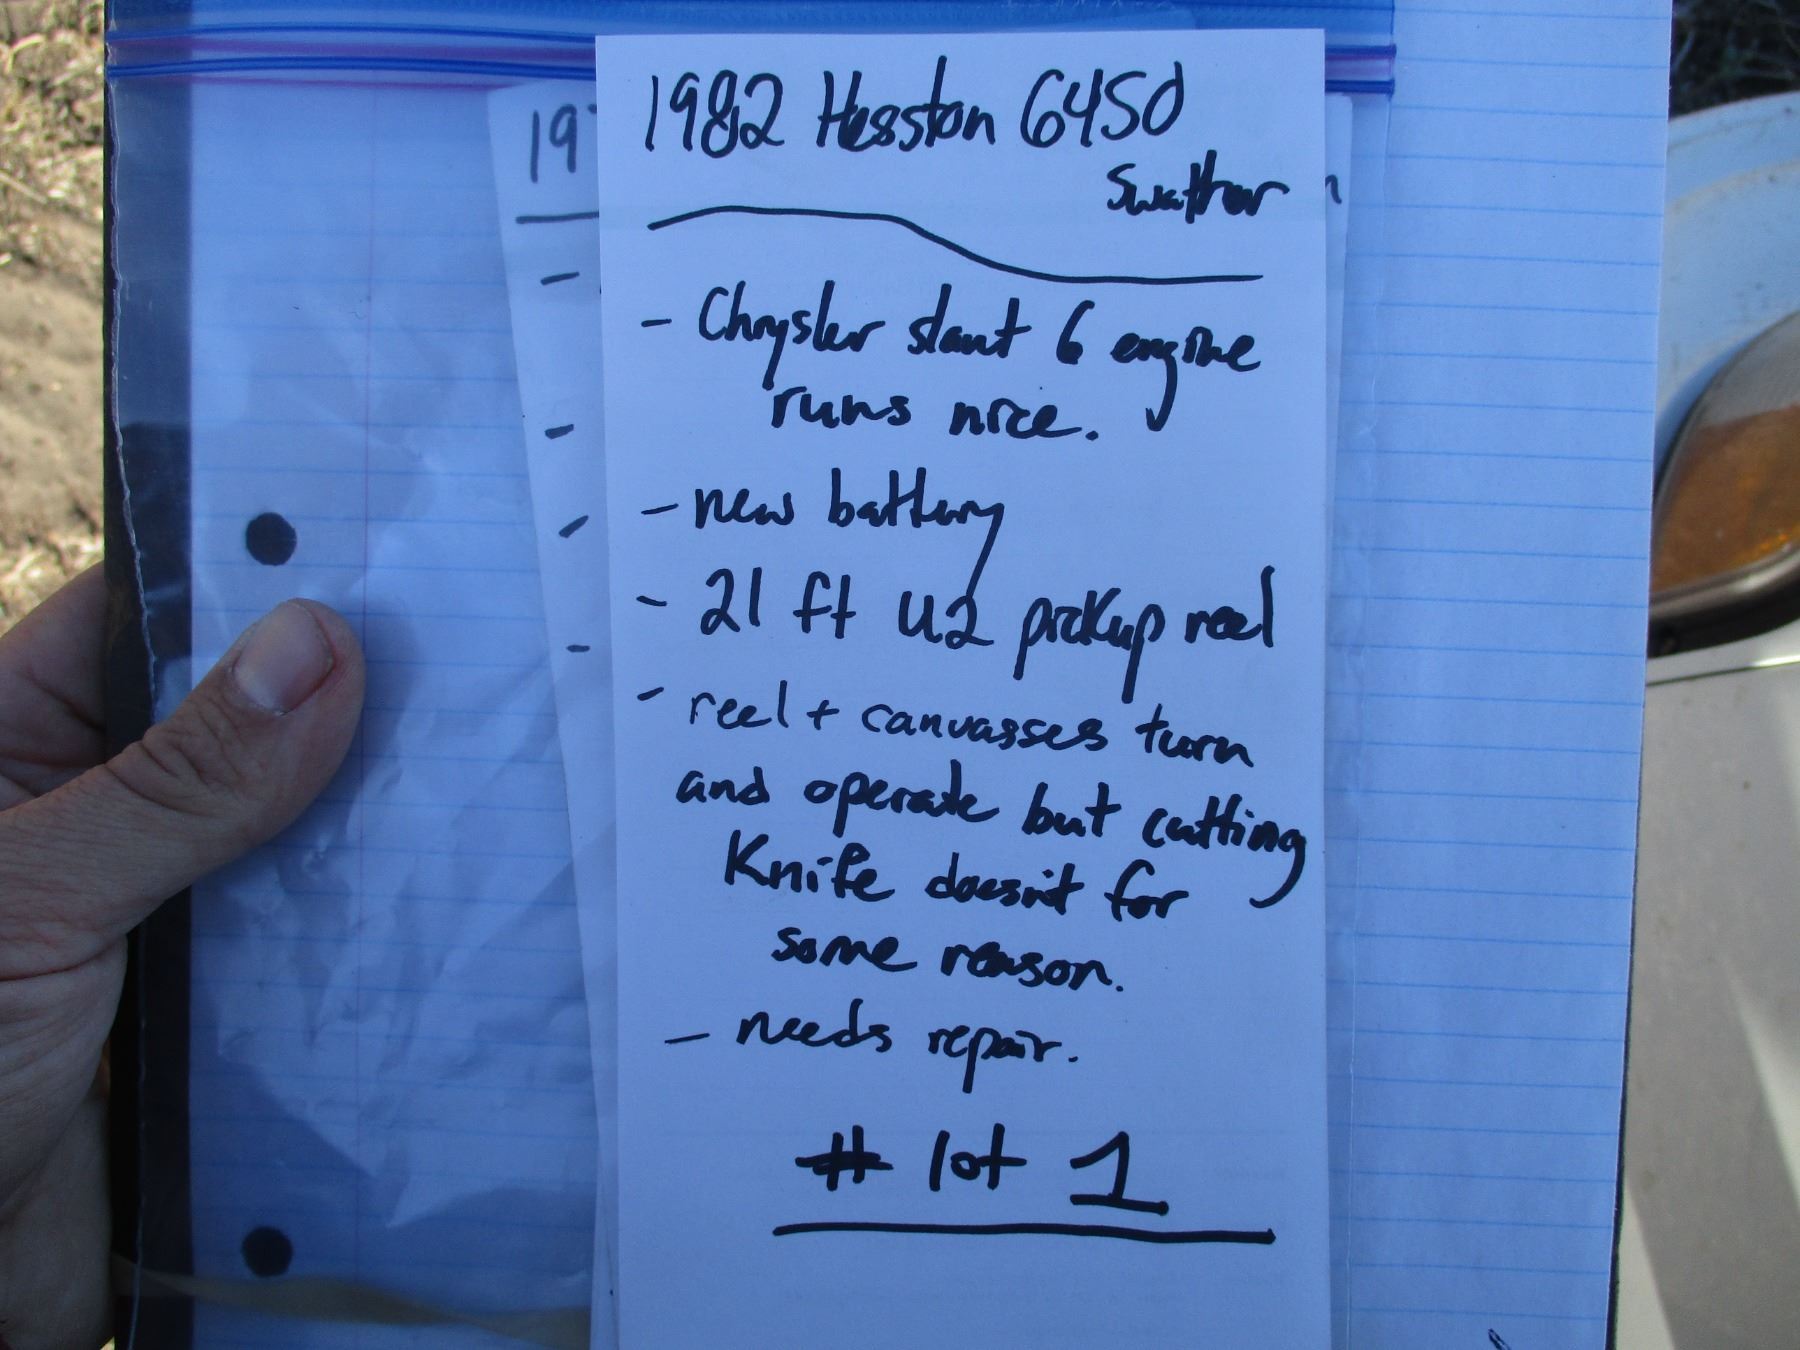 1982 Hesston 6450
Swather
- Chrysler slant 6 engine
runs nice.
- new battery
- 21 ft U2 pickup reel
- reel + canvasses turn
and operate but cutting
Knife doesn't for
some reason.
- needs repair.
# lot 1
19